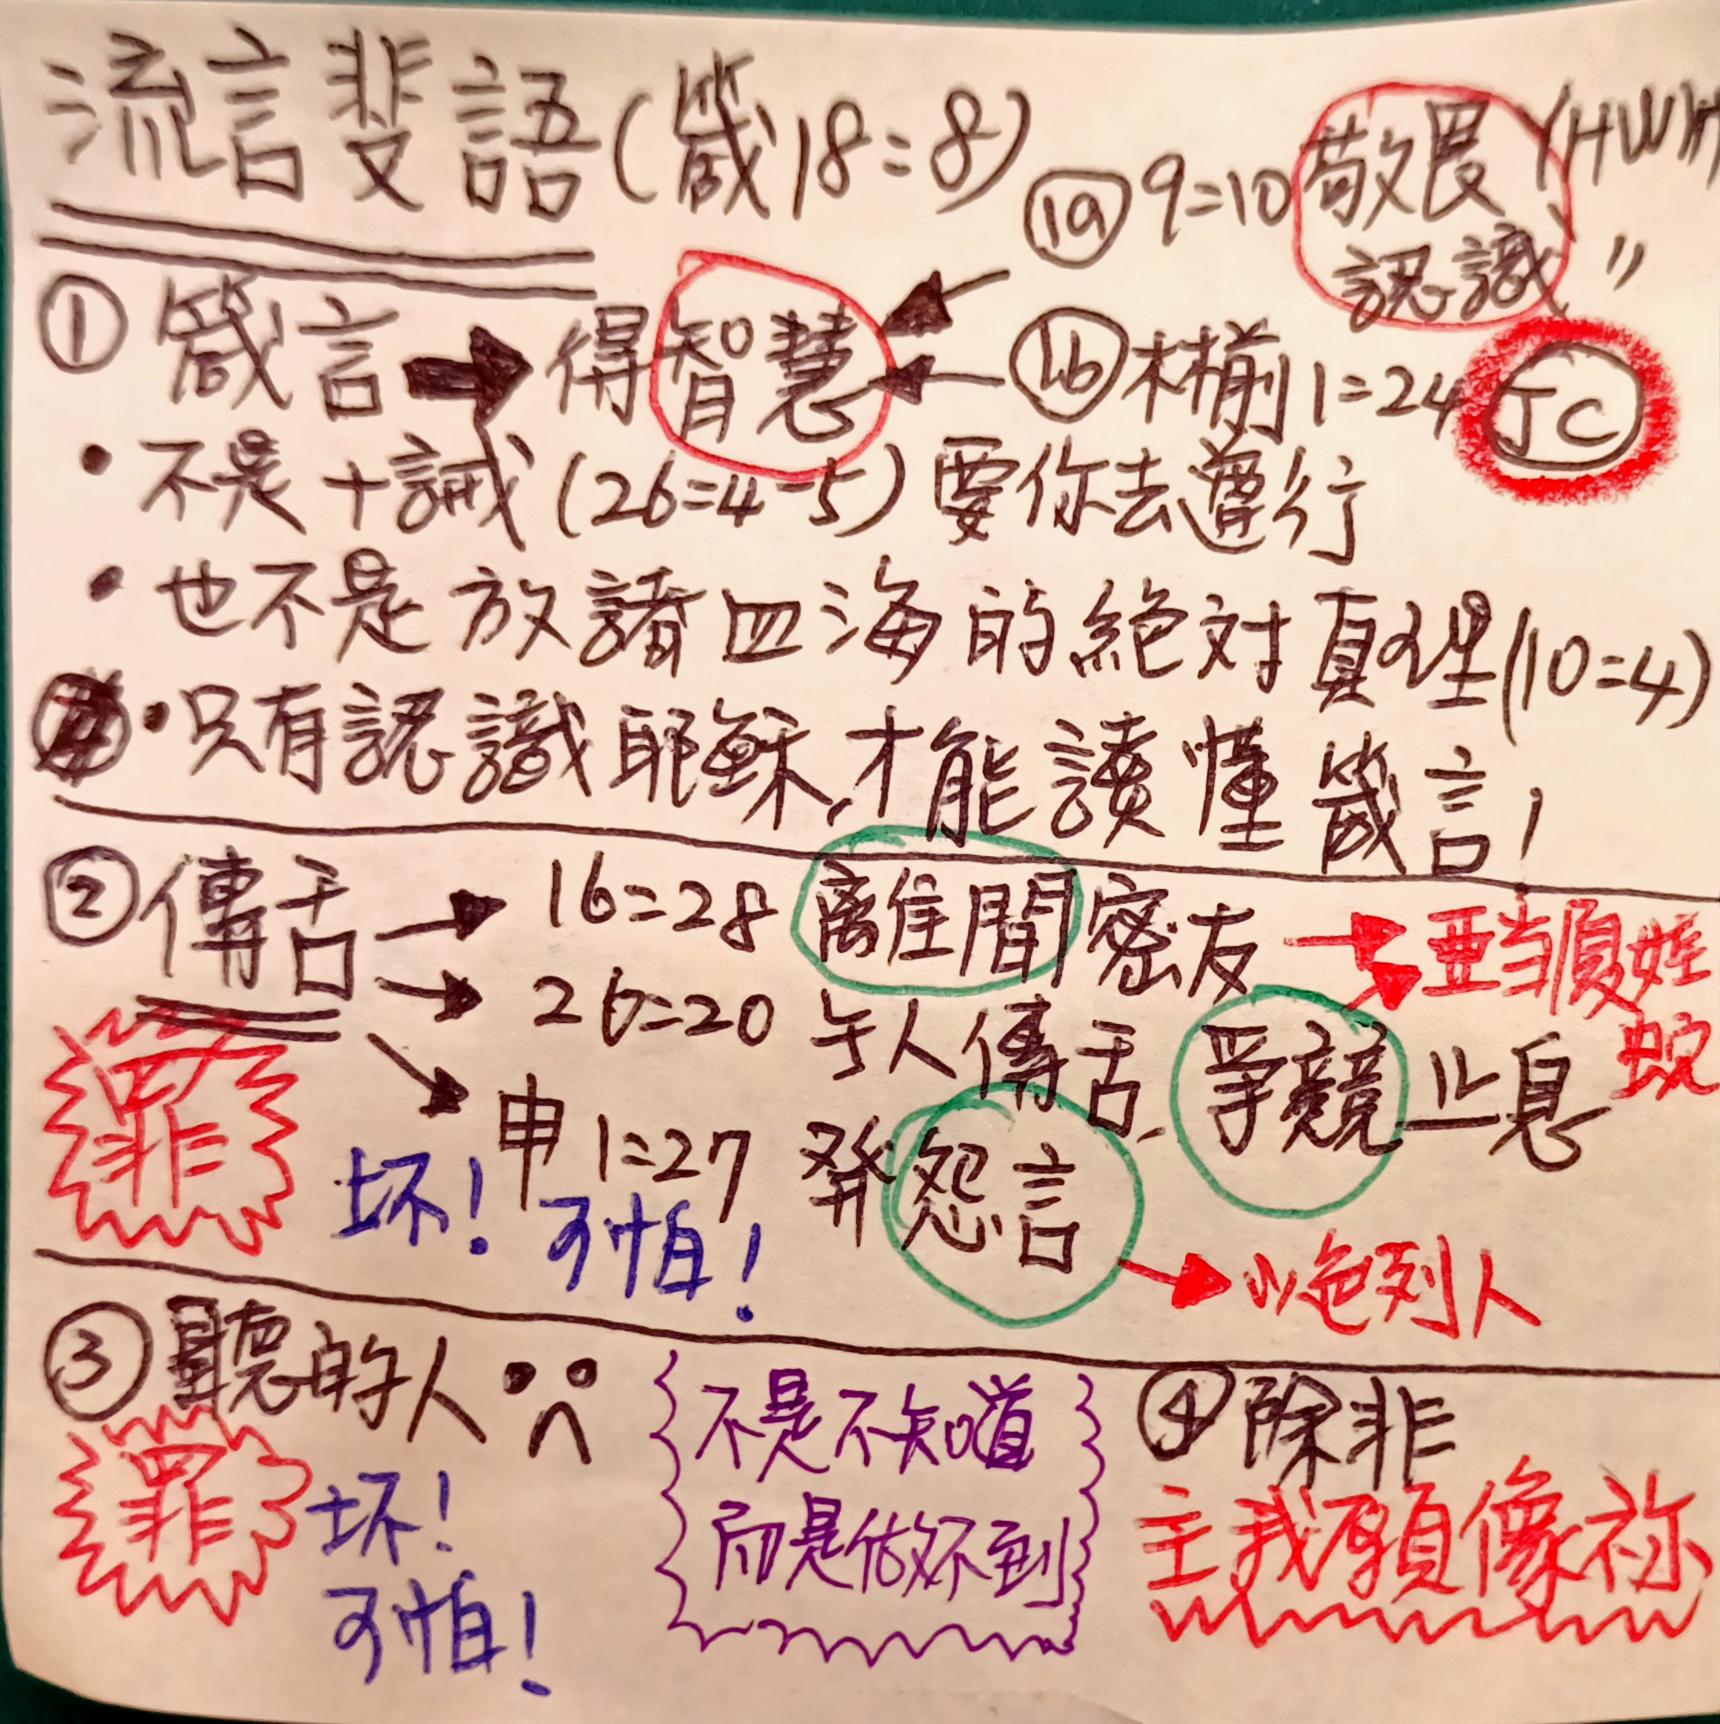 流言斐語(箴18:8)
1a 9:10 敬畏 YHWH
認識 〃
① 箴言 → 得智慧 ← 1b 林前1:24 JC
• 不是十誡(26:4-5)要你去遵行
• 也不是放諸四海的絕対真理(10:4)
• 只有認識耶穌,才能讀懂箴言!
② 傳舌 → 16:28 離間密友 → 亞当夏娃
蛇
→ 26:20 无人傳舌, 爭競止息
罪 坏! 可怕!
→ 申1:27 發怨言 → 以色列人
③ 聽的人
罪 坏!
可怕!
不是不知道
而是做不到
④ 除非
主我願像祢